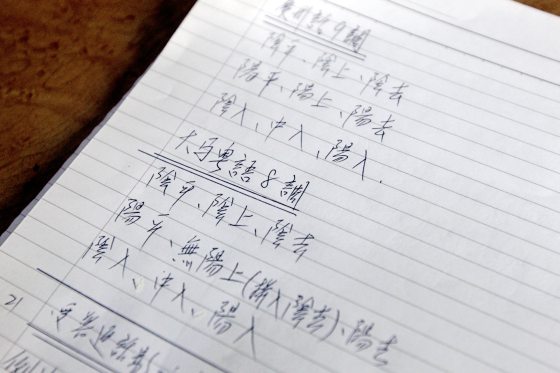 廣州話9調
陰平、陰上、陰去
陽平、陽上、陽去
陰入、中入、陽入.
大马粵語8調
陰平、陰上、陰去
陽平、無陽上(併入陰去)、陽去
陰入、中入、陽入
21
受客